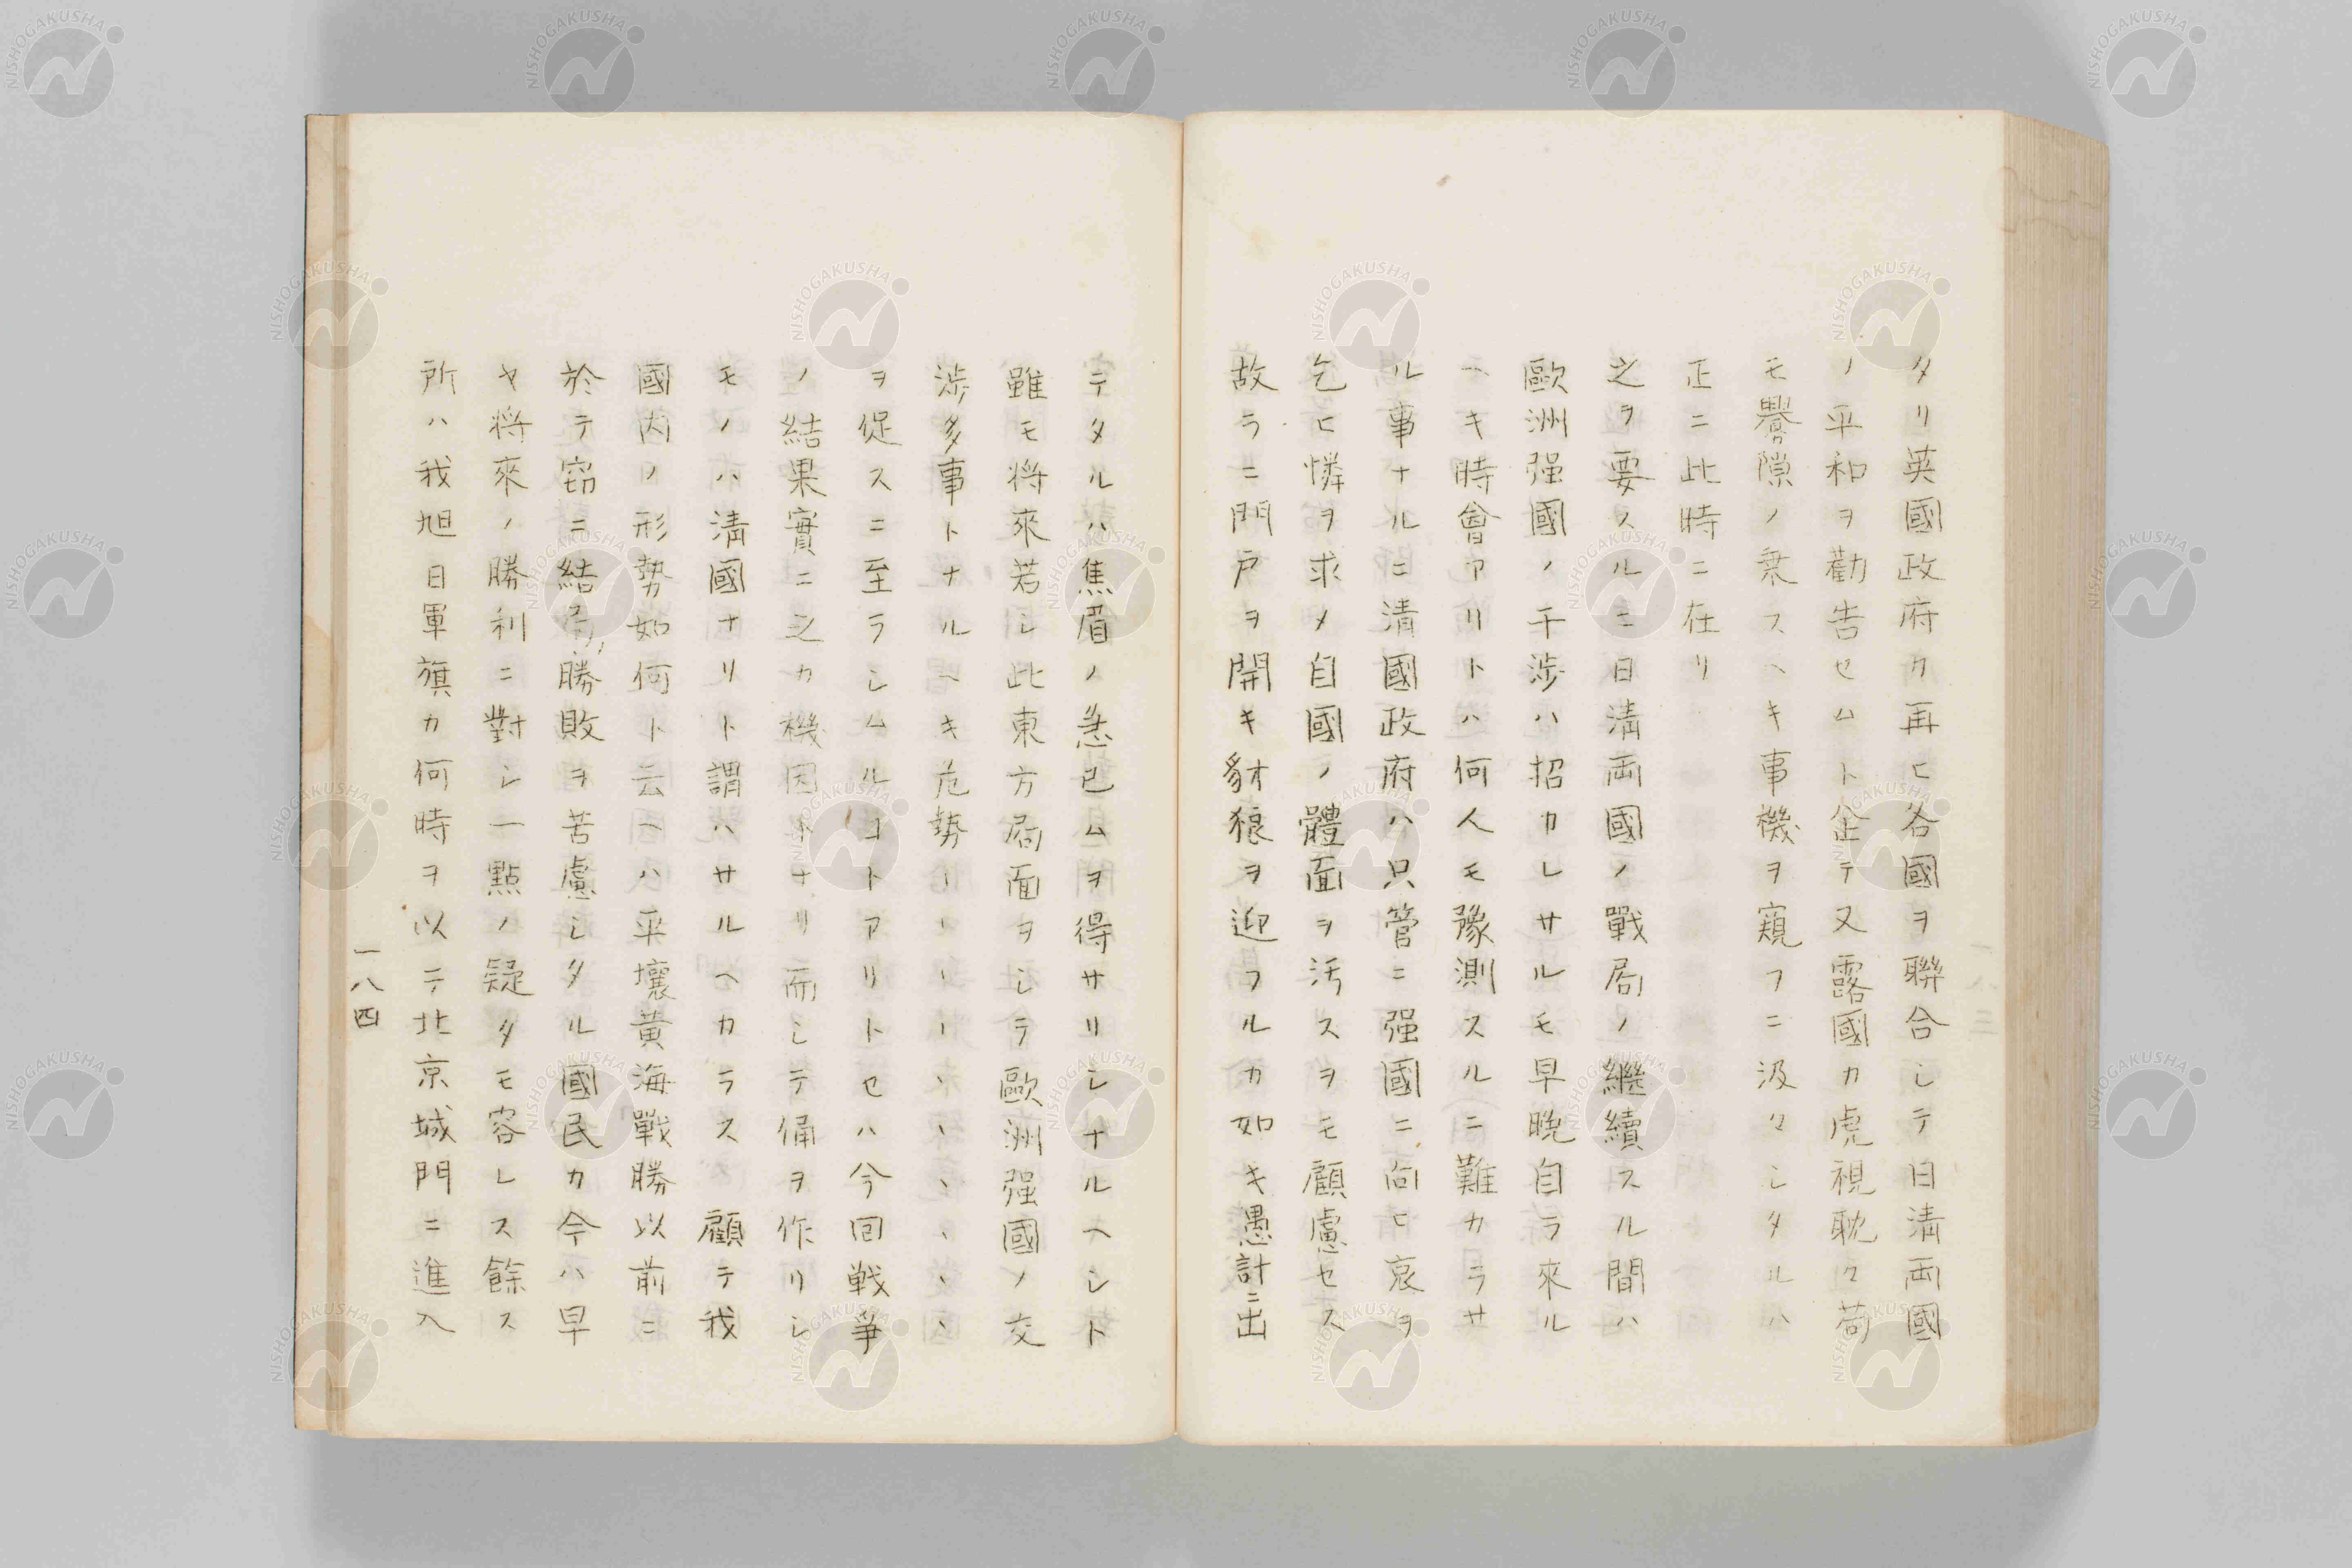 タリ英國政府カ再ヒ各國ヲ聯合シテ日淸兩國
ノ平和ヲ勸告セムト企テ又露國カ虎視耽々苟
モ釁隙ノ乗スヘキ事機ヲ窺フニ汲々シタルハ
正ニ此時ニ在リ
之ヲ要スルニ日淸兩國ノ戰局ノ繼續スル間ハ
歐洲强國ノ干渉ハ招カレサルモ早晩自ラ來ル
ヘキ時會アリトハ何人モ豫測スルニ難カラサ
ル事ナルニ淸國政府ハ只管ニ强國ニ向ヒ哀ヲ
乞ヒ憐ヲ求メ自國ノ體面ヲ汚スヲモ顧慮セス
故ラニ門戸ヲ開キ豺狼ヲ迎フルカ如キ愚計ニ出
テタルハ焦眉ノ急已ムヲ得サリシナルヘシト
雖モ将來若シ此東方局面ヲシテ歐洲强國ノ交
渉多事トナルヘキ危勢
ヲ促スニ至ラシムルコトアリトセハ今回戰爭
ノ結果實ニ之カ機因ナリ而シテ俑ヲ作リシ
モノハ淸國ナリト謂ハサルヘカラス 顧テ我
國内ノ形勢如何ト云ヘハ平壤黄海戰勝以前ニ
於テ窃ニ結局勝敗ヲ苦慮シタル國民カ今ハ早
ヤ将來ノ勝利ニ對シ一點ノ疑タモ容レス餘ス
所ハ我旭日軍旗カ何時ヲ以テ北京城門ニ進入
一八四
NISHOGAKUSHA